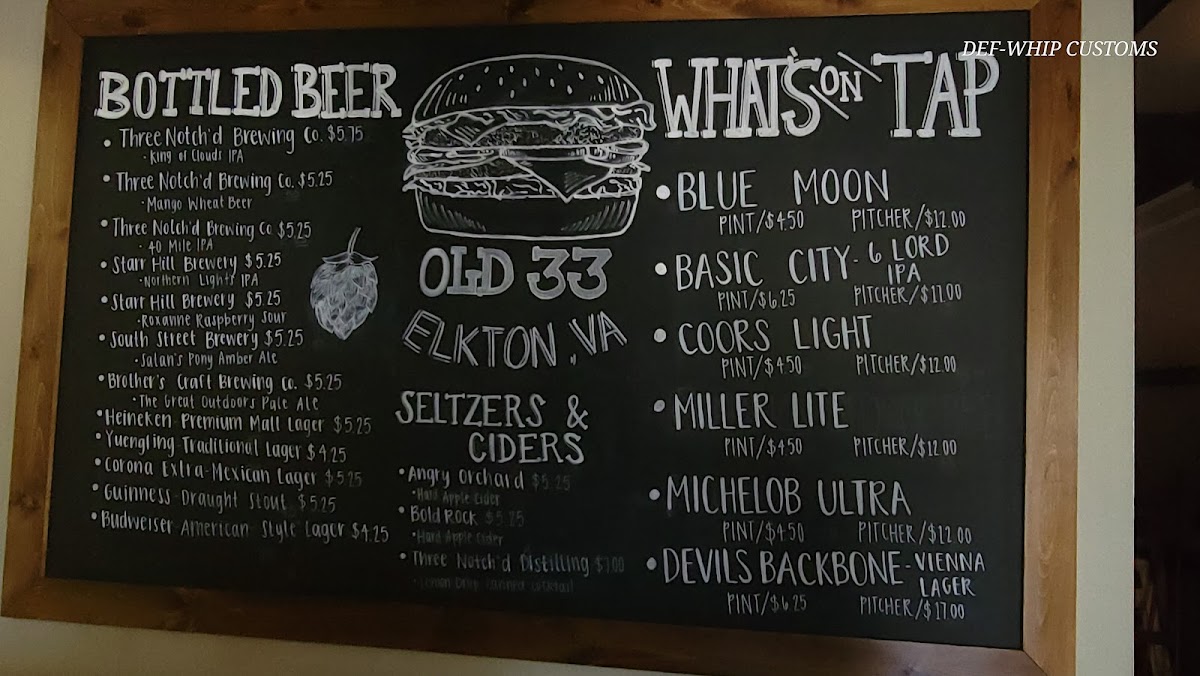 DEF-WHIP CUSTOMS
BOTTLED BEER
• Three Notch'd Brewing Co. $5.75
• King of Clouds IPA
• Three Notch'd Brewing Co. $5.25
• Mango Wheat Beer
• Three Notch'd Brewing Co $5.25
• 40 Mile IPA
• Starr Hill Brewery $5.25
• Northern Lights IPA
• Starr Hill Brewery $5.25
• Roxanne Raspberry Sour
• South Street Brewery $5.25
• Satan's Pony Amber Ale
• Brother's Craft Brewing Co. $5.25
• The Great Outdoors Pale Ale
• Heineken-Premium Malt Lager $5.25
• Yuengling-Traditional Lager $4.25
• Corona Extra-Mexican Lager $5.25
• Guinness-Draught Stout $5.25
• Budweiser-American Style Lager $4.25
OLD 33
ELKTON, VA
SELTZERS &
CIDERS
• Angry Orchard $5.25
• Hard Apple Cider
• Bold Rock $5.25
• Hard Apple Cider
• Three Notch'd Distilling $7.00
• Lemon Drop canned cocktail
WHAT'S ON TAP
• BLUE MOON
PINT/$4.50 PITCHER/$12.00
• BASIC CITY- 6 LORD
IPA
PINT/$6.25 PITCHER/$17.00
• COORS LIGHT
PINT/$4.50 PITCHER/$12.00
• MILLER LITE
PINT/$4.50 PITCHER/$12.00
• MICHELOB ULTRA
PINT/$4.50 PITCHER/$12.00
• DEVILS BACKBONE-VIENNA
LAGER
PINT/$6.25 PITCHER/$17.00